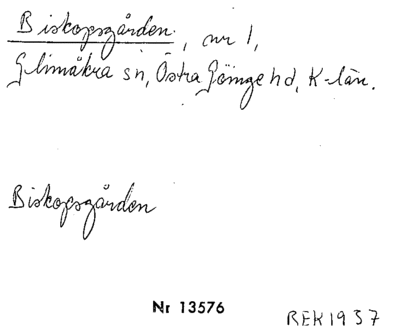 Biskopsgården, nr 1,
Glimåkra sn, Östra Göinge hd, K-län.
Biskopsgården
Nr 13576
REK 1937